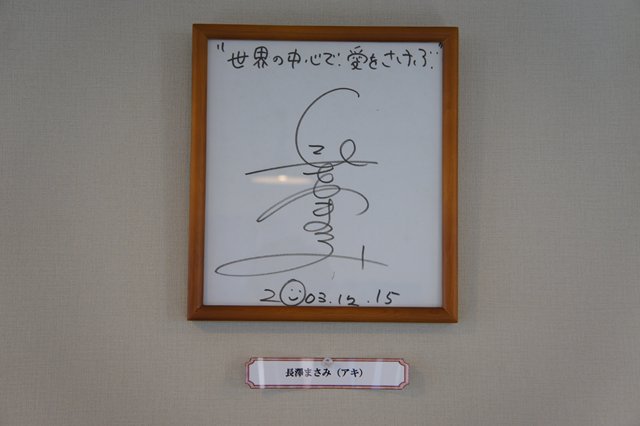 "世界の中心で、愛をさけぶ"
2003.12.15
長澤まさみ (アキ)